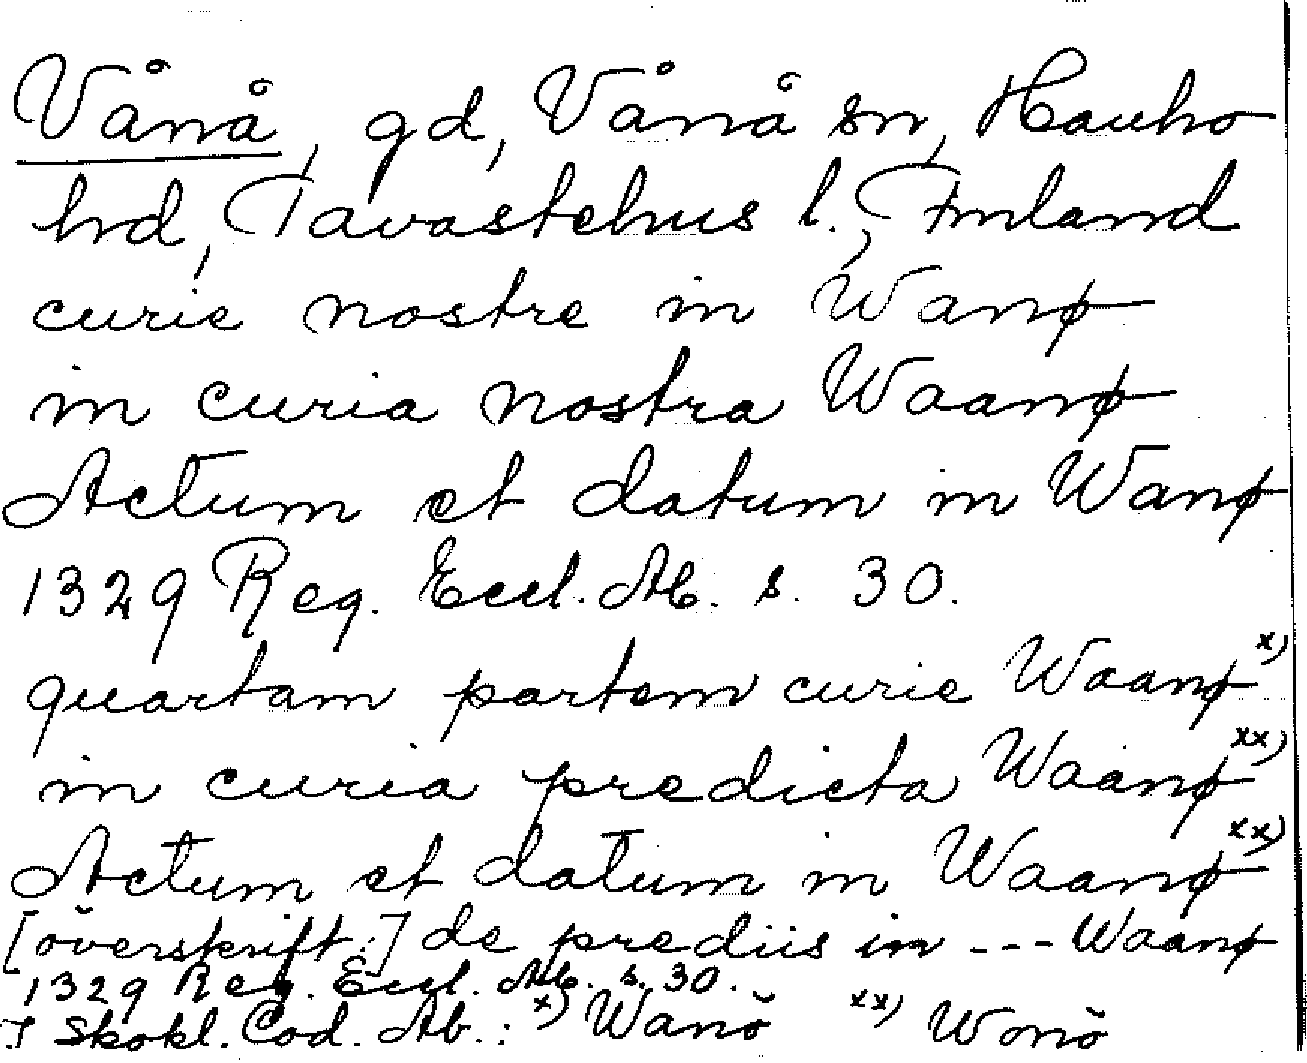 Vånå, gd, Vånå sn, Hauho
hd, Tavastehus l., Finland
curie nostre in Wanø
in curia nostra Waanø
Actum et datum in Wanø
1329 Reg. Eccl. Ab. s. 30.
quartam partem curie Waanø x)
in curia predicta Waanø xx)
Actum et datum in Waanø xx)
[överskrift:] de prediis in --- Waanø
1329 Reg. Eccl. Ab. s. 30.
I Skokl. Cod. Ab.: x) Wanö xx) Wonö